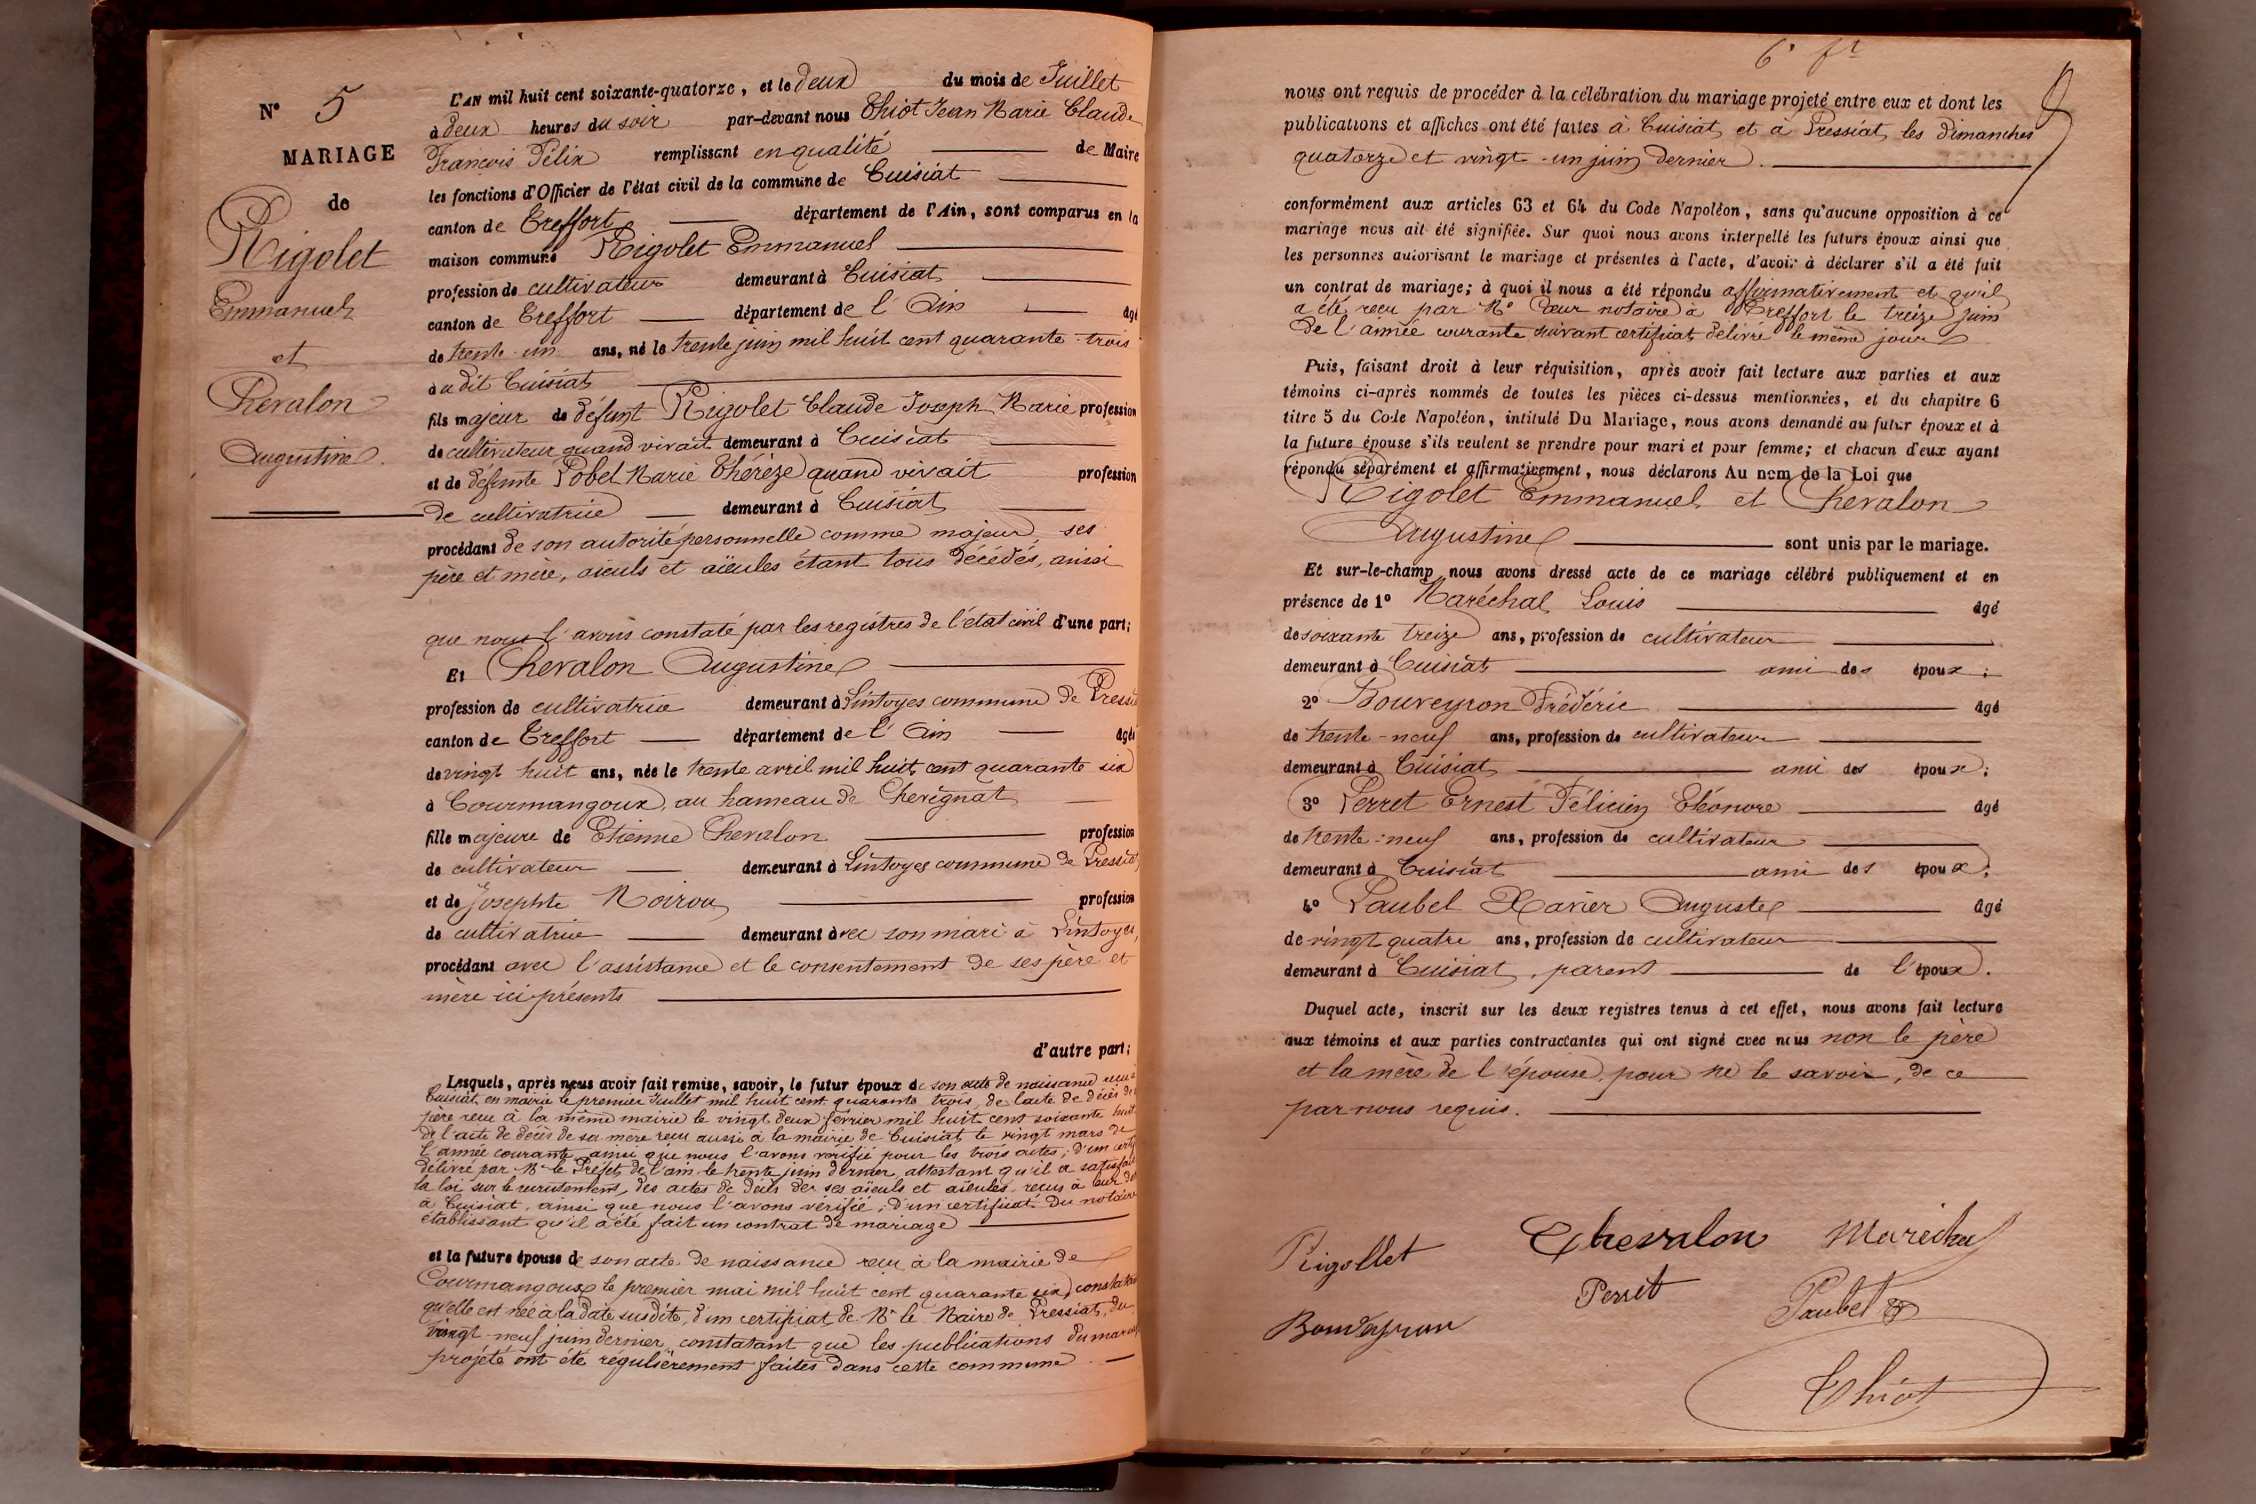 N° 5
MARIAGE
de
Rigolet
Emmanuel
et
Chevalon
Augustine.
L'AN mil huit cent soixante-quatorze, et le deux du mois de Juillet
à deux heures du soir par-devant nous Thiot Jean Marie Claude
François Félix remplissant en qualité de Maire
les fonctions d'Officier de l'état civil de la commune de Cuisiat
canton de Treffort département de l'Ain, sont comparus en la
maison commune Rigolet Emmanuel
profession de cultivateur demeurant à Cuisiat
canton de Treffort département de l'Ain âgé
de trente-un ans, né le trente juin mil huit cent quarante-trois
à udit Cuisiat
fils majeur de défunt Rigolet Claude Joseph Marie profession
de cultivateur quand vivait demeurant à Cuisiat
et de défunte Pobel Marie Thérèze quand vivait profession
de cultivatrice demeurant à Cuisiat
procédant de son autorité personnelle comme majeur, ses
père et mère, aïeuls et aïeules étant tous décédés, ainsi
que nous l'avons constaté par les registres de l'état civil d'une part;
Et Chevalon Augustine
profession de cultivatrice demeurant à Lintoyes commune de Pressiat
canton de Treffort département de l'Ain âgée
de vingt huit ans, née le trente avril mil huit cent quarante six
à Courmangoux, au hameau de Chevignat
fille majeure de Etienne Chevalon profession
de cultivateur demeurant à Lintoyes commune de Pressiat,
et de Josephte Moiroux profession
de cultivatrice demeurant avec son mari à Lintoyes,
procédant avec l'assistance et le consentement de ses père et
mère ici présents
d'autre part;
Lesquels, après nous avoir fait remise, savoir, le futur époux de son acte de naissance reçu à
Cuisiat en mairie le premier Juillet mil huit cent quarante trois, de l'acte de décès de
père reçu à la même mairie le vingt deux février mil huit cent soixante huit
de l'acte de décès de sa mère reçu aussi à la mairie de Cuisiat le vingt mars de
l'année courante ainsi que nous l'avons vérifié pour les trois actes; d'un certif
délivré par Mr le Préfet de l'ain le trente juin dernier, attestant qu'il a satisfait
la loi sur le recrutement, des actes de décès de ses aïeuls et aïeules, reçus à leur date
à Cuisiat, ainsi que nous l'avons vérifié; d'un certificat du notaire
établissant qu'il a été fait un contrat de mariage
et la future épouse de son acte de naissance reçu à la mairie de
Courmangoux le premier mai mil huit cent quarante six, constatant
qu'elle est née à la date susdite, d'un certificat de Mr le Maire de Pressiat, du
vingt-neuf juin dernier, constatant que les publications du mariage
projeté ont été régulièrement faites dans cette commune.
6e ft
nous ont requis de procéder à la célébration du mariage projeté entre eux et dont les
publications et affiches ont été faites à Cuisiat et à Pressiat, les dimanches
quatorze et vingt-un juin dernier.
conformément aux articles 63 et 64 du Code Napoléon, sans qu'aucune opposition à ce
mariage nous ait été signifiée. Sur quoi nous avons interpellé les futurs époux ainsi que
les personnes autorisant le mariage et présentes à l'acte, d'avoir à déclarer s'il a été fait
un contrat de mariage; à quoi il nous a été répondu affirmativement et qu'il
a été reçu par Me Cœur notaire à Treffort le treize juin
de l'année courante suivant certificat délivré le même jour
Puis, faisant droit à leur réquisition, après avoir fait lecture aux parties et aux
témoins ci-après nommés de toutes les pièces ci-dessus mentionnées, et du chapitre 6
titre 5 du Code Napoléon, intitulé Du Mariage, nous avons demandé au futur époux et à
la future épouse s'ils veulent se prendre pour mari et pour femme; et chacun d'eux ayant
répondu séparément et affirmativement, nous déclarons Au nom de la Loi que
Rigolet Emmanuel et Chevalon
Augustine sont unis par le mariage.
Et sur-le-champ nous avons dressé acte de ce mariage célébré publiquement et en
présence de 1° Maréchal Louis âgé
de soixante treize ans, profession de cultivateur
demeurant à Cuisiat ami des époux;
2° Bouveyron Frédéric âgé
de trente-neuf ans, profession de cultivateur
demeurant à Cuisiat ami des époux;
3° Perret Ernest Félicien Eléonore âgé
de trente-neuf ans, profession de cultivateur
demeurant à Cuisiat ami des époux;
4° Paubel Xavier Auguste âgé
de vingt quatre ans, profession de cultivateur
demeurant à Cuisiat, parent de l'époux.
Duquel acte, inscrit sur les deux registres tenus à cet effet, nous avons fait lecture
aux témoins et aux parties contractantes qui ont signé avec nous non le père
et la mère de l'épouse, pour ne le savoir, de ce
par nous requis.
Rigollet Chevalon Maréchal
Perret Paubel
Bouveyron
Thiot